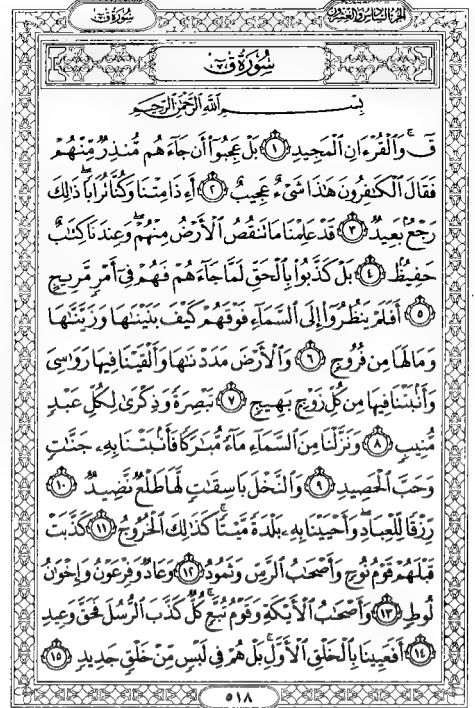 سُورَةُ قٓ
الجزء السادس والعشرون
سُورَةُ قٓ
بِسْمِ ٱللَّهِ ٱلرَّحْمَٰنِ ٱلرَّحِيمِ
قٓۚ وَٱلْقُرْءَانِ ٱلْمَجِيدِ ﴿١﴾ بَلْ عَجِبُوٓا۟ أَن جَآءَهُم مُّنذِرٌ مِّنْهُمْ
فَقَالَ ٱلْكَٰفِرُونَ هَٰذَا شَىْءٌ عَجِيبٌ ﴿٢﴾ أَءِذَا مِتْنَا وَكُنَّا تُرَابًاۖ ذَٰلِكَ
رَجْعٌۢ بَعِيدٌ ﴿٣﴾ قَدْ عَلِمْنَا مَا تَنقُصُ ٱلْأَرْضُ مِنْهُمْۖ وَعِندَنَا كِتَٰبٌ
حَفِيظٌۢ ﴿٤﴾ بَلْ كَذَّبُوا۟ بِٱلْحَقِّ لَمَّا جَآءَهُمْ فَهُمْ فِىٓ أَمْرٍ مَّرِيجٍ
﴿٥﴾ أَفَلَمْ يَنظُرُوٓا۟ إِلَى ٱلسَّمَآءِ فَوْقَهُمْ كَيْفَ بَنَيْنَٰهَا وَزَيَّنَّٰهَا
وَمَا لَهَا مِن فُرُوجٍ ﴿٦﴾ وَٱلْأَرْضَ مَدَدْنَٰهَا وَأَلْقَيْنَا فِيهَا رَوَٰسِىَ
وَأَنۢبَتْنَا فِيهَا مِن كُلِّ زَوْجٍۭ بَهِيجٍ ﴿٧﴾ تَبْصِرَةً وَذِكْرَىٰ لِكُلِّ عَبْدٍ
مُّنِيبٍ ﴿٨﴾ وَنَزَّلْنَا مِنَ ٱلسَّمَآءِ مَآءً مُّبَٰرَكًا فَأَنۢبَتْنَا بِهِۦ جَنَّٰتٍ
وَحَبَّ ٱلْحَصِيدِ ﴿٩﴾ وَٱلنَّخْلَ بَاسِقَٰتٍ لَّهَا طَلْعٌ نَّضِيدٌ ﴿١٠﴾
رِّزْقًا لِّلْعِبَادِۖ وَأَحْيَيْنَا بِهِۦ بَلْدَةً مَّيْتًاۚ كَذَٰلِكَ ٱلْخُرُوجُ ﴿١١﴾ كَذَّبَتْ
قَبْلَهُمْ قَوْمُ نُوحٍ وَأَصْحَٰبُ ٱلرَّسِّ وَثَمُودُ ﴿١٢﴾ وَعَادٌ وَفِرْعَوْنُ وَإِخْوَٰنُ
لُوطٍ ﴿١٣﴾ وَأَصْحَٰبُ ٱلْأَيْكَةِ وَقَوْمُ تُبَّعٍۚ كُلٌّ كَذَّبَ ٱلرُّسُلَ فَحَقَّ وَعِيدِ
﴿١٤﴾ أَفَعَيِينَا بِٱلْخَلْقِ ٱلْأَوَّلِۚ بَلْ هُمْ فِى لَبْسٍ مِّنْ خَلْقٍ جَدِيدٍ ﴿١٥﴾
٥١٨